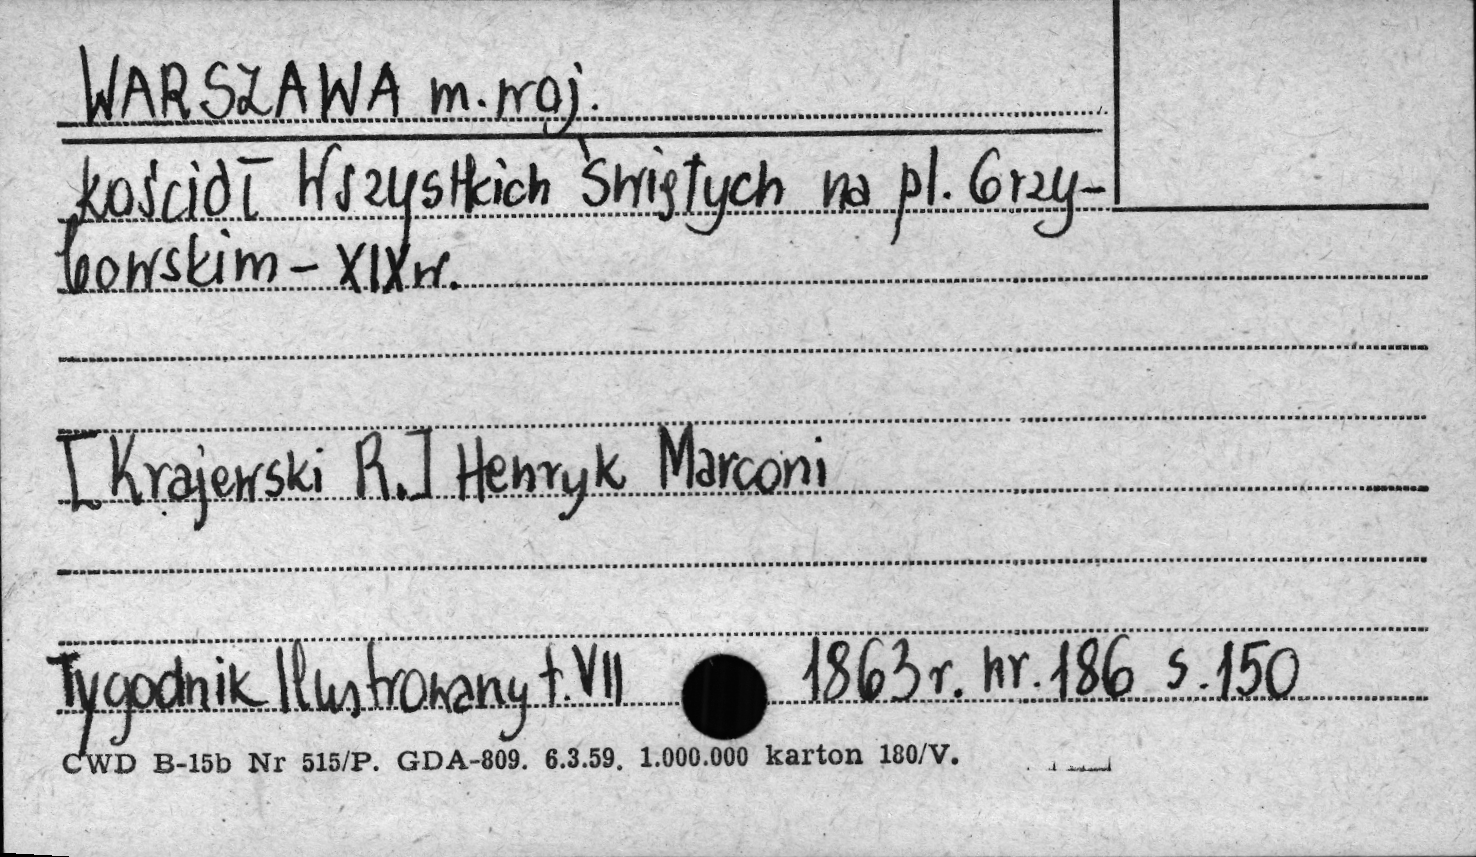 WARSZAWA m. woj.
kościół Wszystkich Świętych na pl. Grzy-
bowskim – XIX w.
[Krajewski R.] Henryk Marconi
Tygodnik Ilustrowany t. VII 1863 r. nr. 186 s. 150
CWD B-15b Nr 515/P. GDA-809. 6.3.59. 1.000.000 karton 180/V.